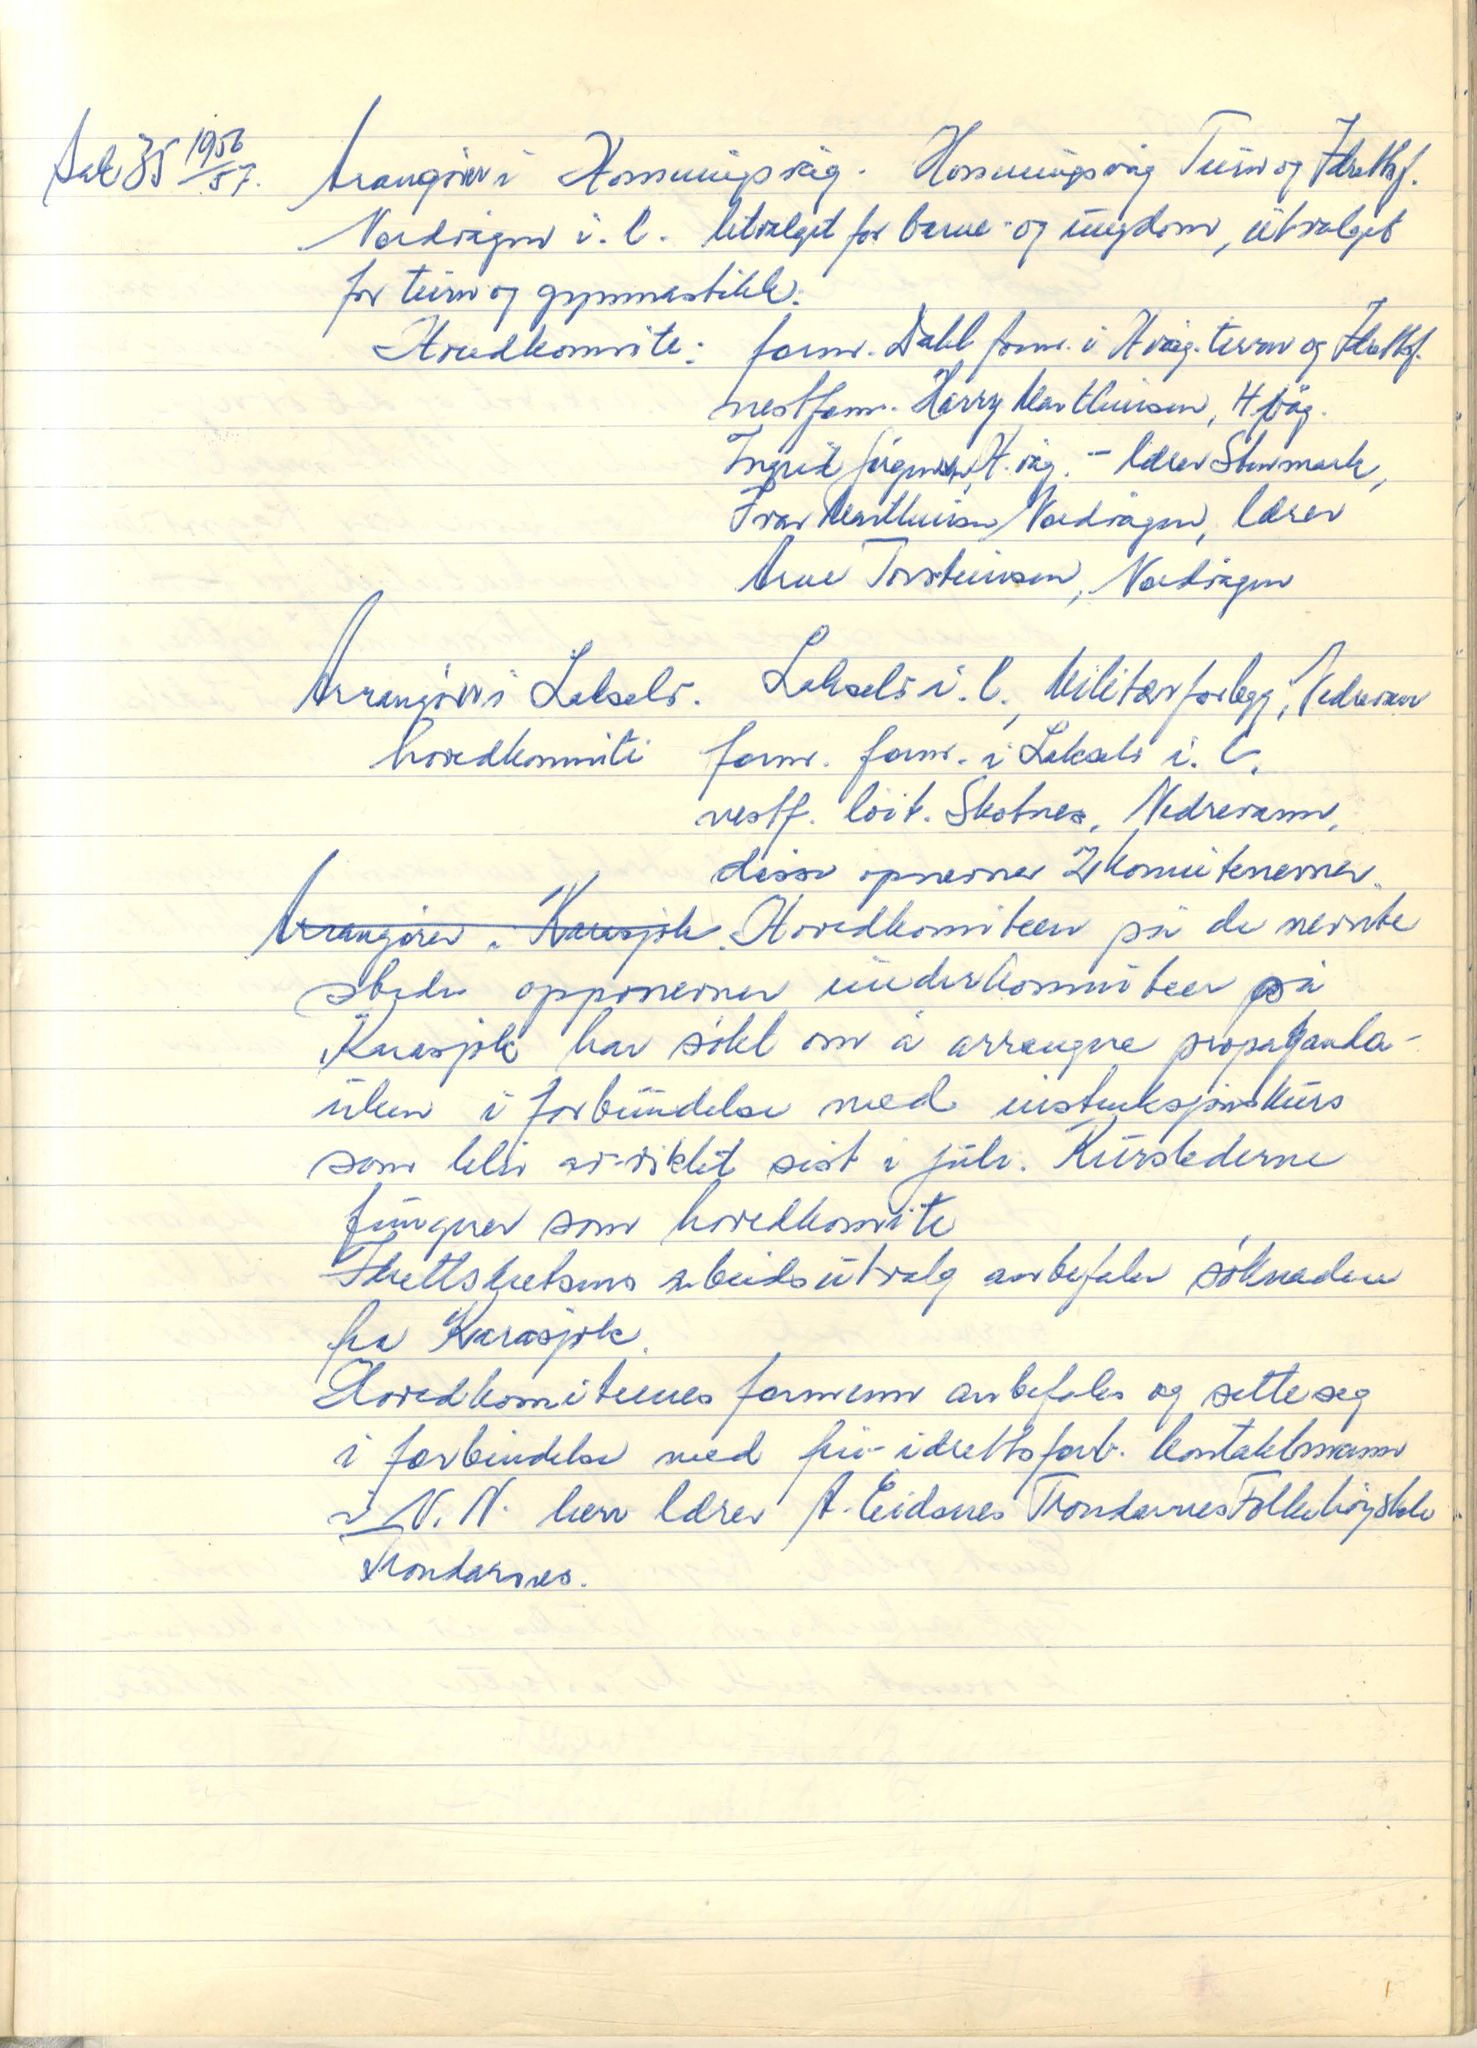 Sak 35 1956/57. Arrangører i Honningsvåg. Honningsvåg Turn og Idrettsf.
Nordvågen i.l. Utvalget for barne- og ungdom, utvalget
for turn og gymnastikk.
Hovedkomite: form. Dahl form. i H.våg. turn og Idrettsf.
nestform. Harry Marthinsen, H.våg.
Ingrid Jørgensen, H.våg. - lærer Stenmark,
Ivar Marthinsen Nordvågen, lærer
Arne Torsteinsen, Nordvågen
Arrangører i Lakselv. Lakselv i.l., Militærforlegg, Nedrevann
hovedkomite form. form. i Lakselv i. l.
nestf. løit. Skotnes, Nedrevann,
disse opnevner komitenevner.
Arrangører i Karasjok. Hovedkomiteen på de nevnte
steder oppnevner underkomiteer på
Karasjok har søkt om å arrangere propaganda-
uken i forbindelse med instruksjonskurs
som blir av-viklet sist i juli. Kurslederne
fungerer som hovedkomite
Idrettskretsens arbeidsutvalg anbefaler søknaden
fra Karasjok.
Hovedkomiteenes formenn anbefales og sette seg
i forbindelse med fri-idrettsforb. kontaktmann
i N.N. herr lærer A. Eidsnes Trondarnes Folkehøyskole
Trondarnes.